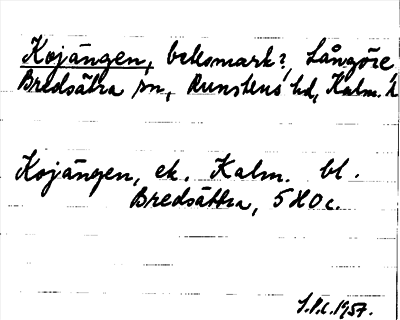 Kojängen, betesmark?, Långöre
Bredsätra sn, Runstens hd, Kalm. l
Kojängen, ek. Kalm. bl.
Bredsättra, 5 H 0 c.
S.P.L. 1957.